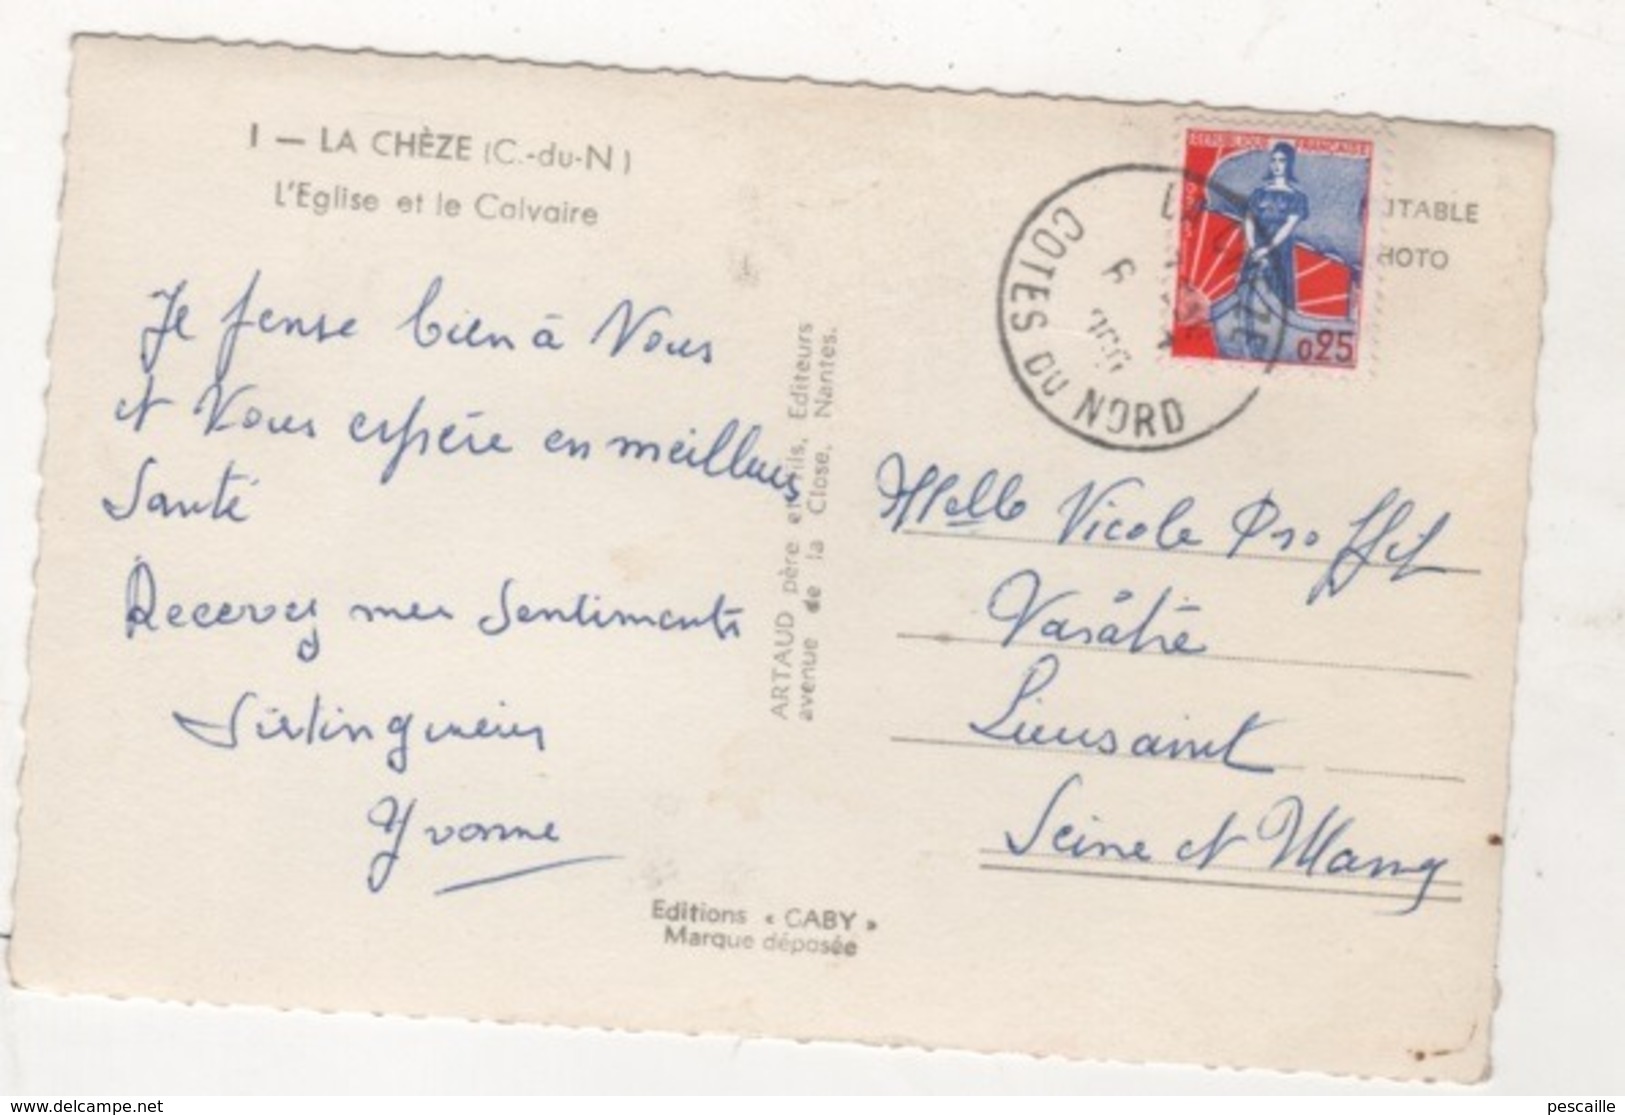 I — LA CHÈZE (C.-du-N)
L'Eglise et le Calvaire
Je pense bien à Vous
et Vous espère en meilleurs
Santé
Recevez mes Sentiments
Distingueies
Yvonne
ARTAUD père et fils, Editeurs
avenue de la Close, Nantes.
Editions « GABY »
Marque déposée
REPUBLIQUE FRANÇAISE
0,25
COTES DU NORD
ITABLE
HOTO
Melle Nicole Proffit
Varâtre
Lieusaint
Seine et Marne
delcampe.net
pescaille